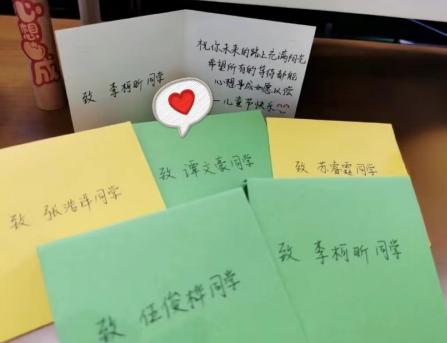 心想
成
祝你未来的路上充满阳光
希望所有的等待都能
心想事成如愿以偿
—儿童节快乐
致 李柯昕同学
致 谭文豪同学
致 苏睿霖同学
致 张浩译同学
致 李柯昕同学
致 伍俊桦同学